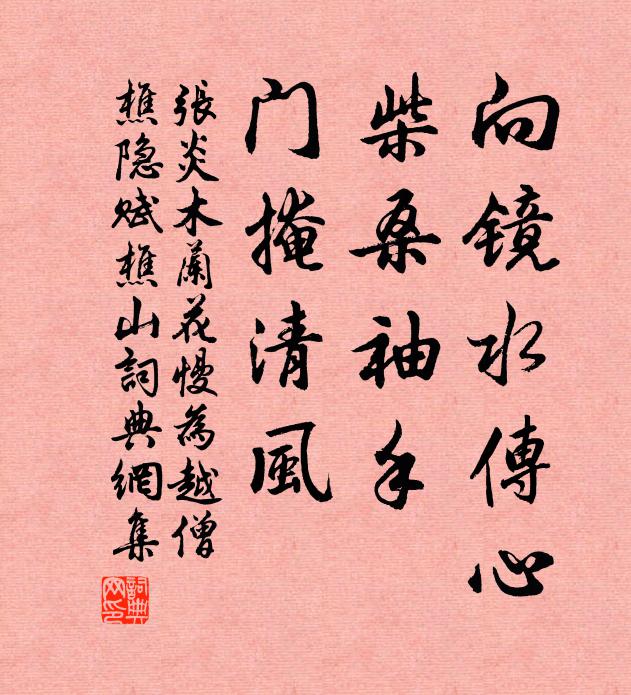 向镜水傳心
柴桑袖手
门掩清風
張炎木蘭花慢為越僧
樵隐赋樵山詞典網集
詞典网印